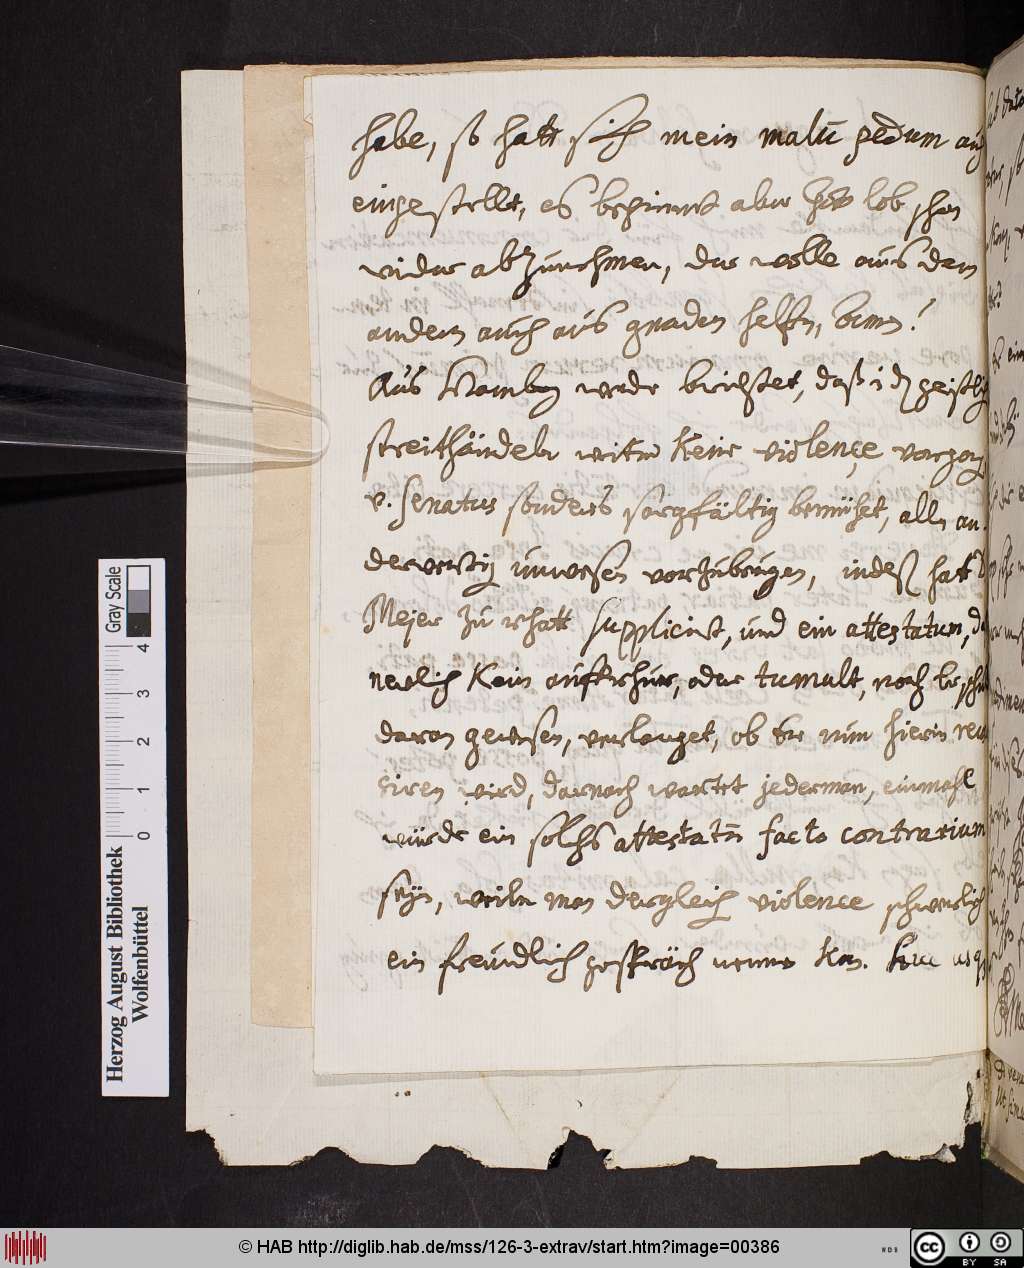 habe, so hatt sich mein malū pedum auch
eingestellt, es beginnet aber Gott lob schon
wider abzunehmen, der wolle aus dem
andern auch aus gnaden helfen, amen!
Aus Hamburg werde berichtet, daß in dz geistlich
streithändeln weiter Keine violence, vorgang,
v. Senatus sonders sorgfältig bemühet, allen an-
derwertig unwesen vorzubeugen, indeß hatt
Mejer zu rhatt suppliciret, und ein attestatum, daß
neulich Kein auffrhur, oder tumult, noch
daran gewesen, verlanget, ob Er nun hierin reus
siren wird, darnach wartet jederman, einmahl
würde ein solchs attestatū facto contrarium
seyn, weiln man dergleich violence schwerlich
ein freundlich gespräch nennen Kan. huc usq
Gray Scale
0 1 2 3 4
Herzog August Bibliothek
Wolfenbüttel
© HAB http://diglib.hab.de/mss/126-3-extrav/start.htm?image=00386
cc BY SA